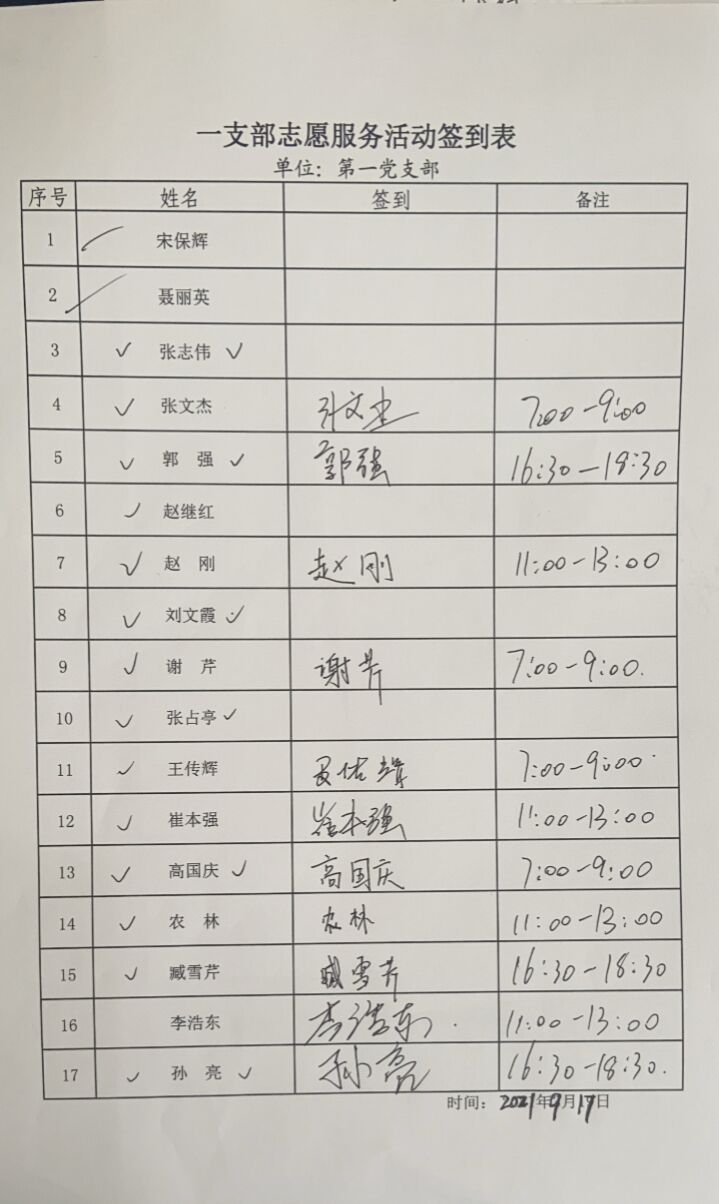 一支部志愿服务活动签到表
单位：第一党支部
序号 姓名 签到 备注
1 宋保辉
2 聂丽英
3 ✓ 张志伟 ✓
4 ✓ 张文杰 张文杰 7:00-9:00
5 ✓ 郭 强 ✓ 郭强 16:30-18:30
6 ✓ 赵继红
7 ✓ 赵 刚 赵刚 11:00-13:00
8 ✓ 刘文霞 ✓
9 ✓ 谢 芹 谢芹 7:00-9:00.
10 ✓ 张占亭 ✓
11 ✓ 王传辉 7:00-9:00
12 ✓ 崔本强 崔本强 11:00-13:00
13 ✓ 高国庆 ✓ 高国庆 7:00-9:00
14 ✓ 农 林 农林 11:00-13:00
15 ✓ 臧雪芹 臧雪芹 16:30-18:30
16 李浩东 李浩东. 11:00-13:00
17 ✓ 孙 亮 ✓ 孙亮 16:30-18:30.
时间：2021年9月17日